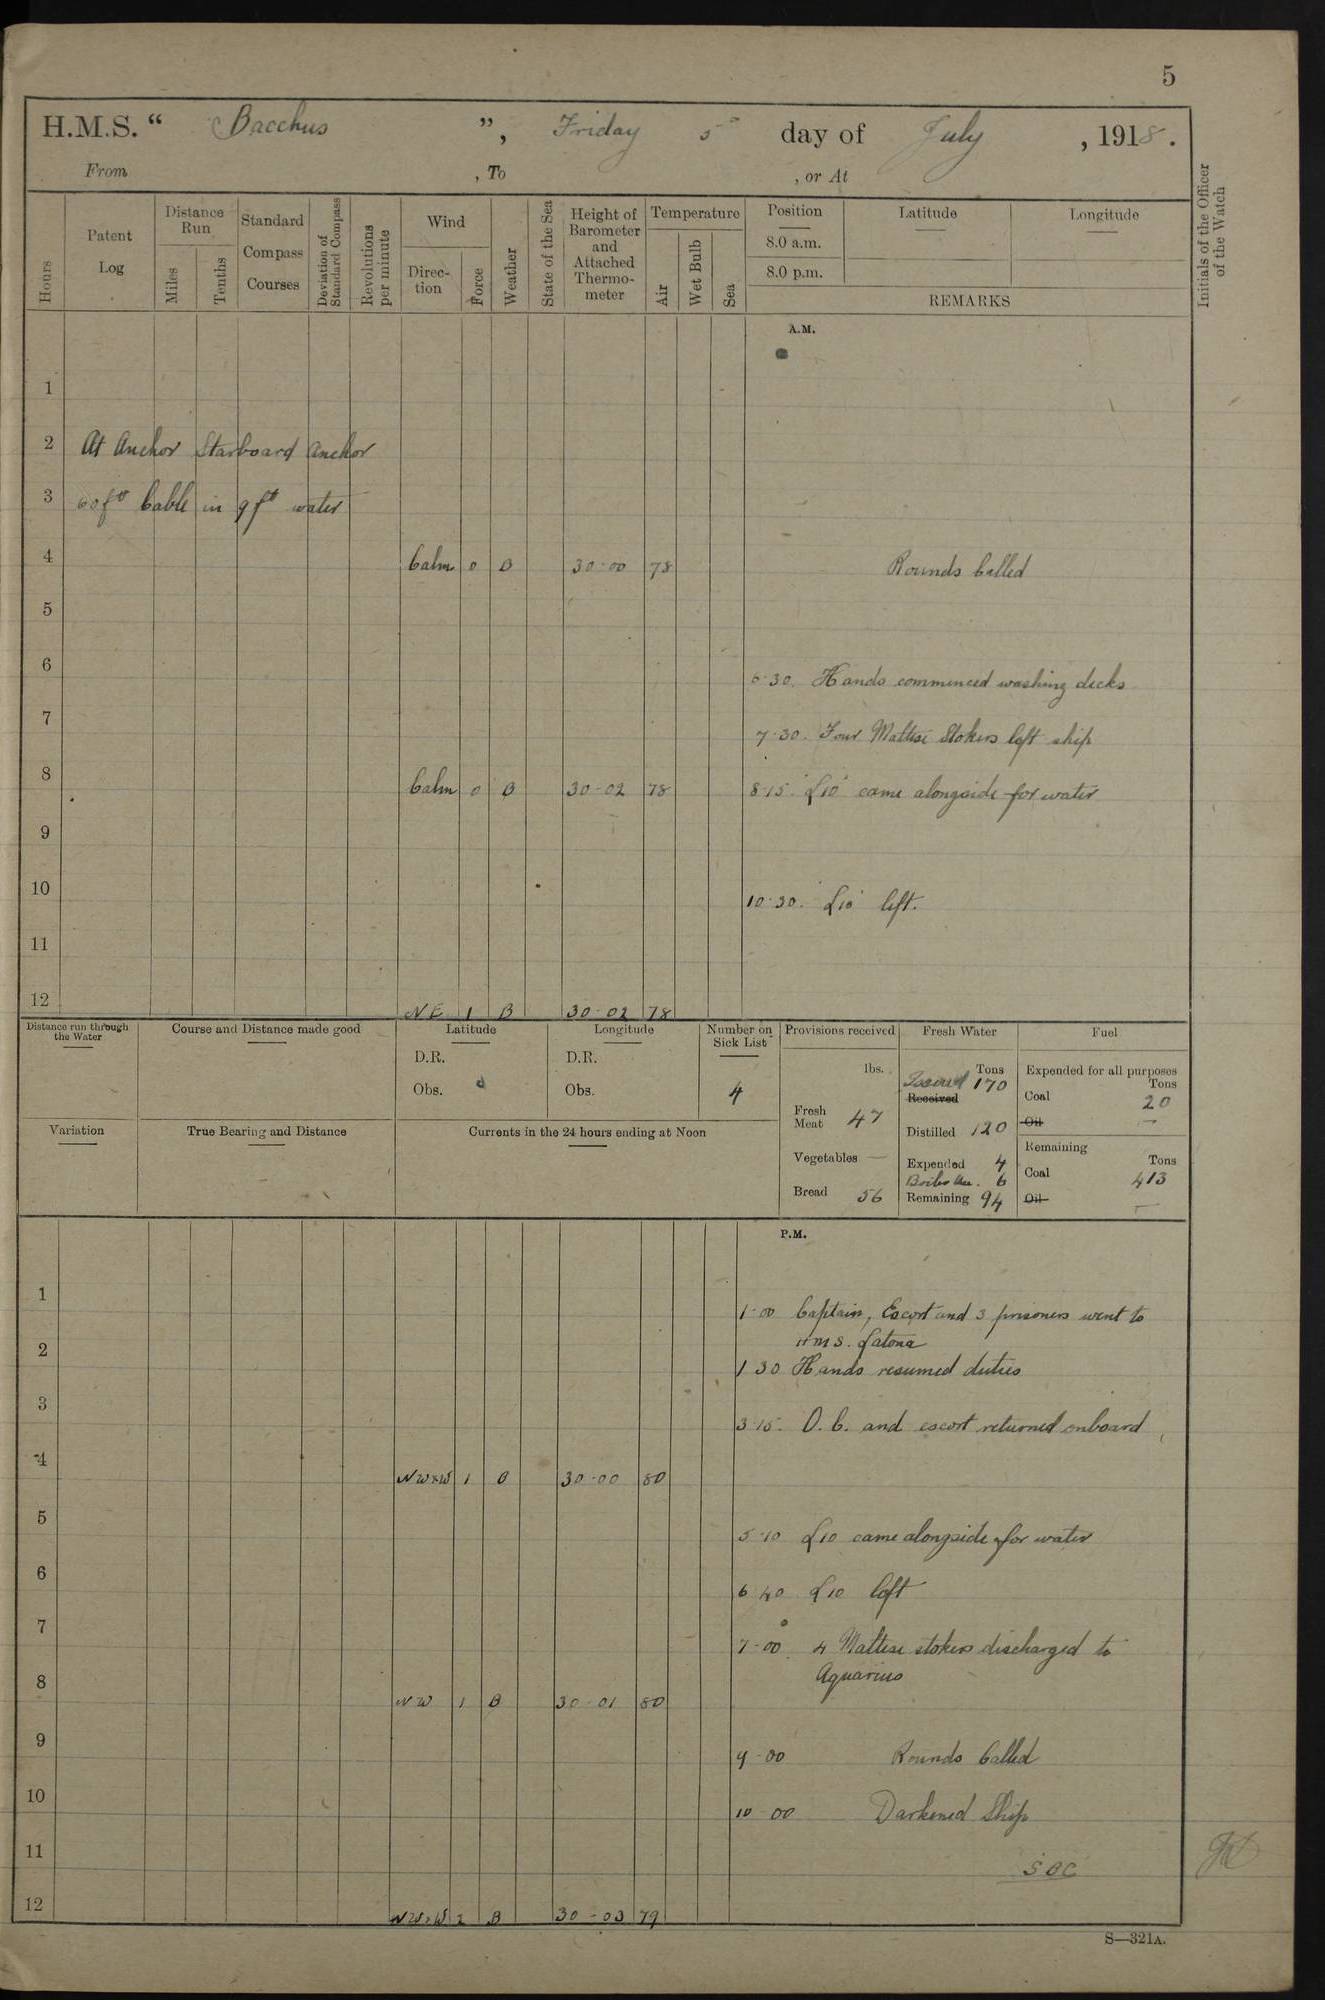 5
H.M.S. “ Bacchus ”, Friday 5th day of July, 1918.
From , To , or At
Hours
Patent Log
Distance Run
Miles
Tenths
Standard Compass Courses
Deviation of Standard Compass
Revolutions per minute
Wind
Direction
Force
Weather
State of the Sea
Height of Barometer and Attached Thermometer
Temperature
Air
Wet Bulb
Sea
Position
8.0 a.m.
8.0 p.m.
Latitude
Longitude
REMARKS
Initials of the Officer of the Watch
A.M.
1
2 At Anchor Starboard Anchor
3 60 fms Cable in 9 fms water
4 Calm 0 B 30-00 78 Rounds Called
5
6 6·30. Hands commenced washing decks
7 7·30. Four Maltese Stokers left ship
8 Calm 0 B 30-02 78 8·15. 'L10' came alongside for water
9
10 10·30. 'L10' left.
11
12 NE 1 B 30-02 78
Distance run through the Water
Course and Distance made good
Latitude
D.R.
Obs.
Longitude
D.R.
Obs.
Number on Sick List
4
Provisions received
lbs.
Fresh Meat 47
Vegetables —
Bread 56
Fresh Water
Tons
Issued 170
Received
Distilled 120
Expended 4
Boiler Use. 6
Remaining 94
Fuel
Expended for all purposes
Tons
Coal 20
Oil —
Remaining
Tons
Coal 413
Oil —
Variation
True Bearing and Distance
Currents in the 24 hours ending at Noon
P.M.
1 1-00 Captain, Escort and 3 prisoners went to
HMS. Latona
2 1 30 Hands resumed duties
3 3·15. O.C. and escort returned onboard
4 NWxW 1 B 30-00 80
5 5·10 L10 came alongside for water
6 6 40 L10 left
7 7-00. 4 Maltese stokers discharged to
Aquarius
8 NW 1 B 30-01 80
9 9-00 Rounds Called
10 10-00 Darkened Ship
11 SOC
12 NWxW 2 B 30-03 79
S—321A.